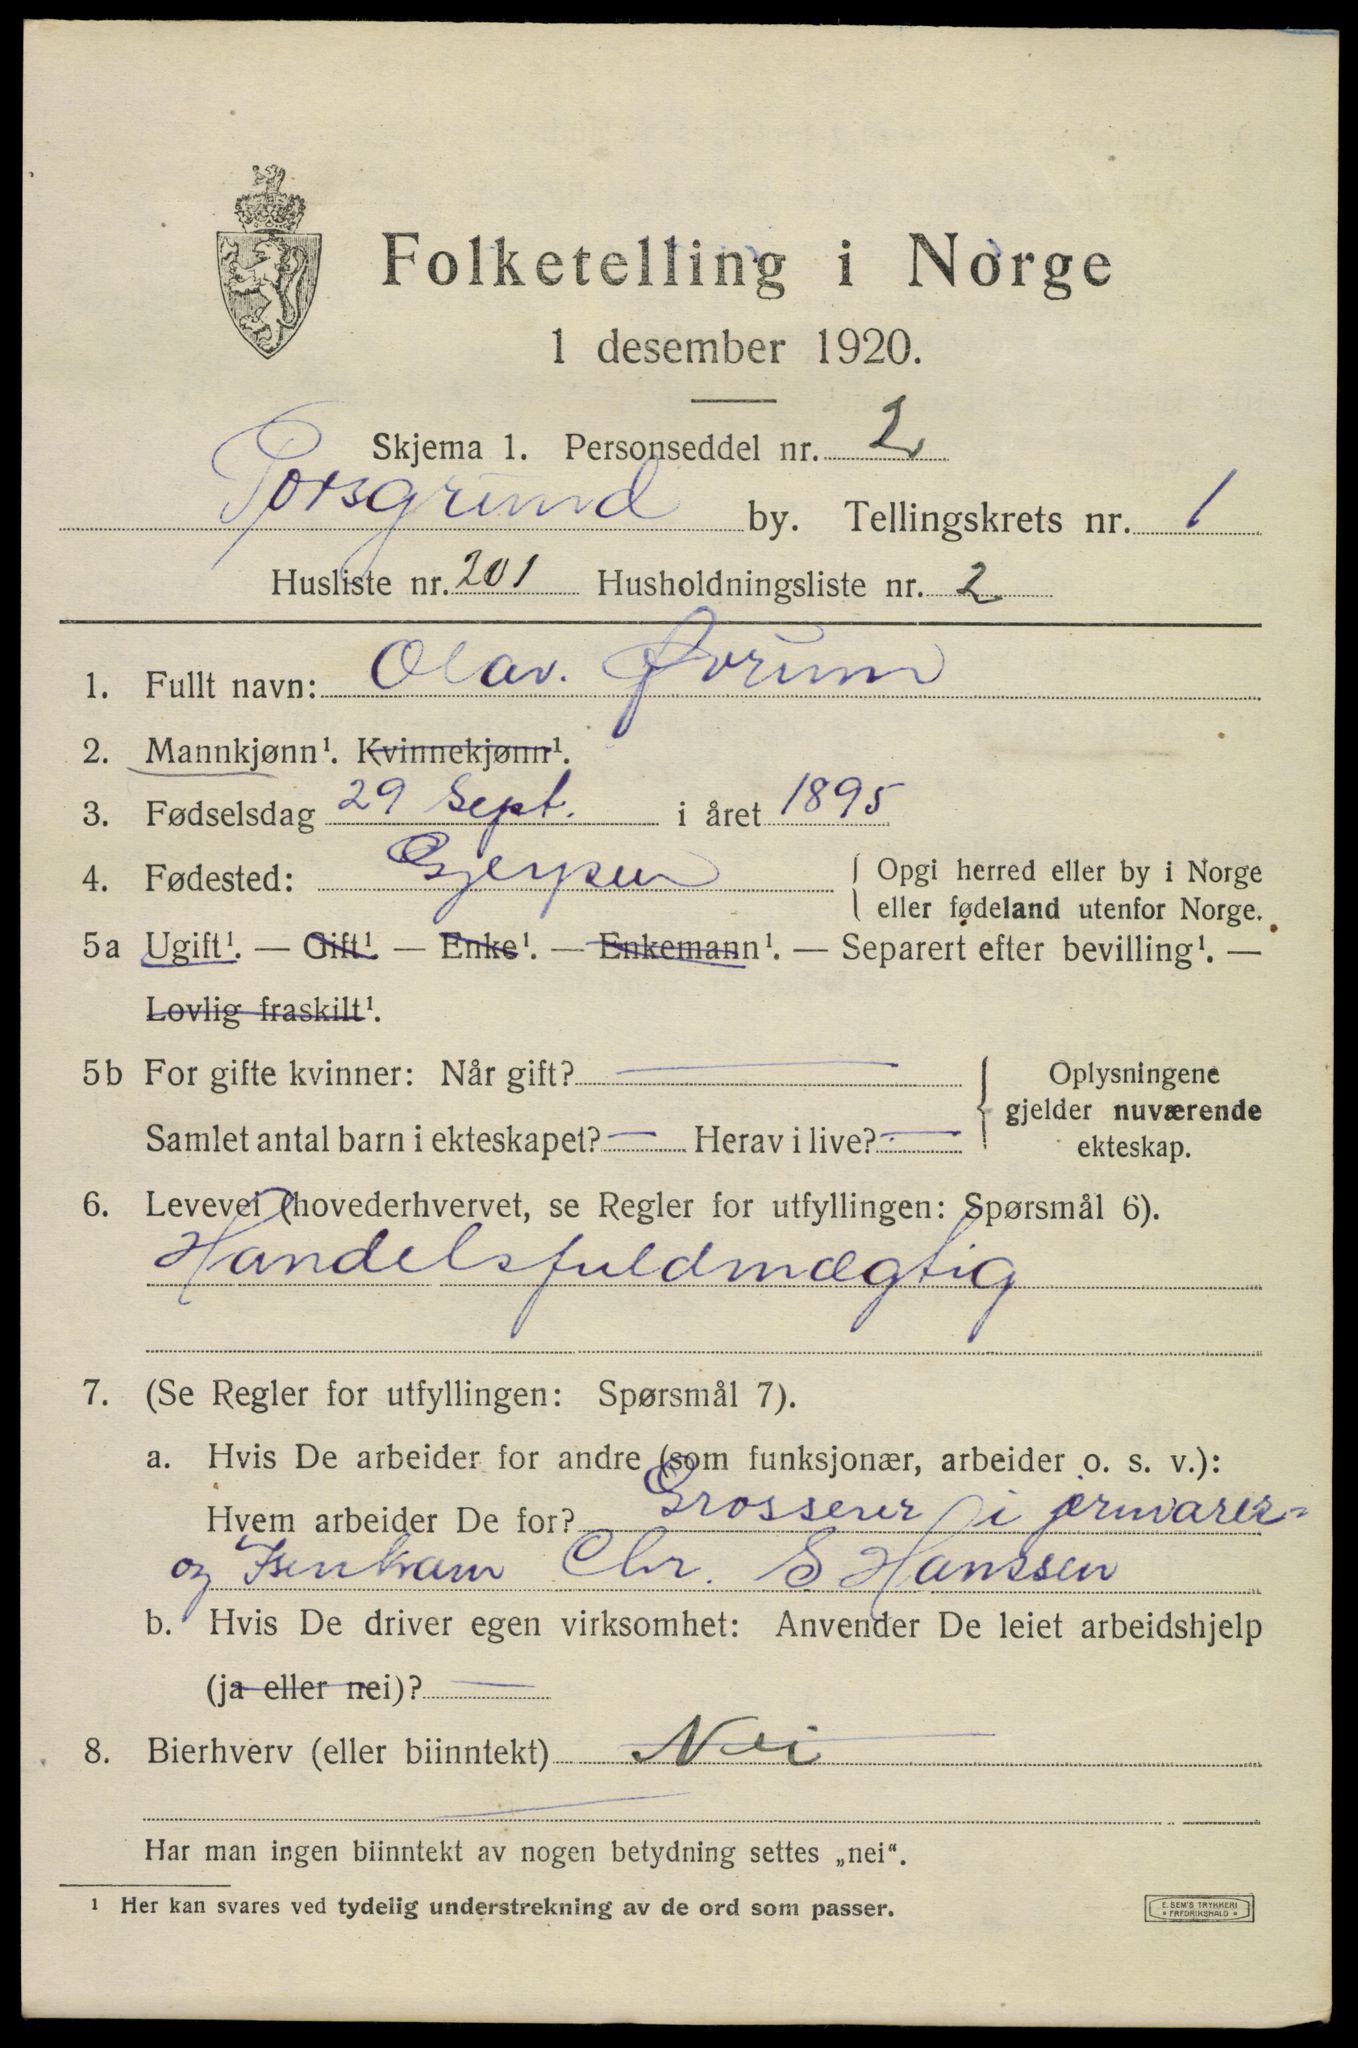 Folketelling i Norge
1 desember 1920.
Skjema 1. Personseddel nr. 2
Porsgrund by. Tellingskrets nr. 1
Husliste nr. 201 Husholdningsliste nr. 2
1. Fullt navn: Olav. Øvrum
2. Mannkjønn¹. Kvinnekjønn¹.
3. Fødselsdag 29 Sept. i året 1895
4. Fødested: Gjerpen { Opgi herred eller by i Norge
eller fødeland utenfor Norge.
5a Ugift¹. — Gift¹. — Enke¹. — Enkemann¹. — Separert efter bevilling¹. —
Lovlig fraskilt¹.
5b For gifte kvinner: Når gift? — { Oplysningene
gjelder nuværende
Samlet antal barn i ekteskapet? — Herav i live? — ekteskap.
6. Levevei (hovederhvervet, se Regler for utfyllingen: Spørsmål 6).
Handelsfuldmægtig
7. (Se Regler for utfyllingen: Spørsmål 7).
a. Hvis De arbeider for andre (som funksjonær, arbeider o. s. v.):
Hvem arbeider De for? Grosserer i jernvarer-
og Isenkram Chr. S Hanssen
b. Hvis De driver egen virksomhet: Anvender De leiet arbeidshjelp
(ja eller nei)? —
8. Bierhverv (eller biinntekt) Nei
Har man ingen biinntekt av nogen betydning settes „nei“.
¹ Her kan svares ved tydelig understrekning av de ord som passer.
E. SEM'S TRYKKERI
FREDRIKSHALD